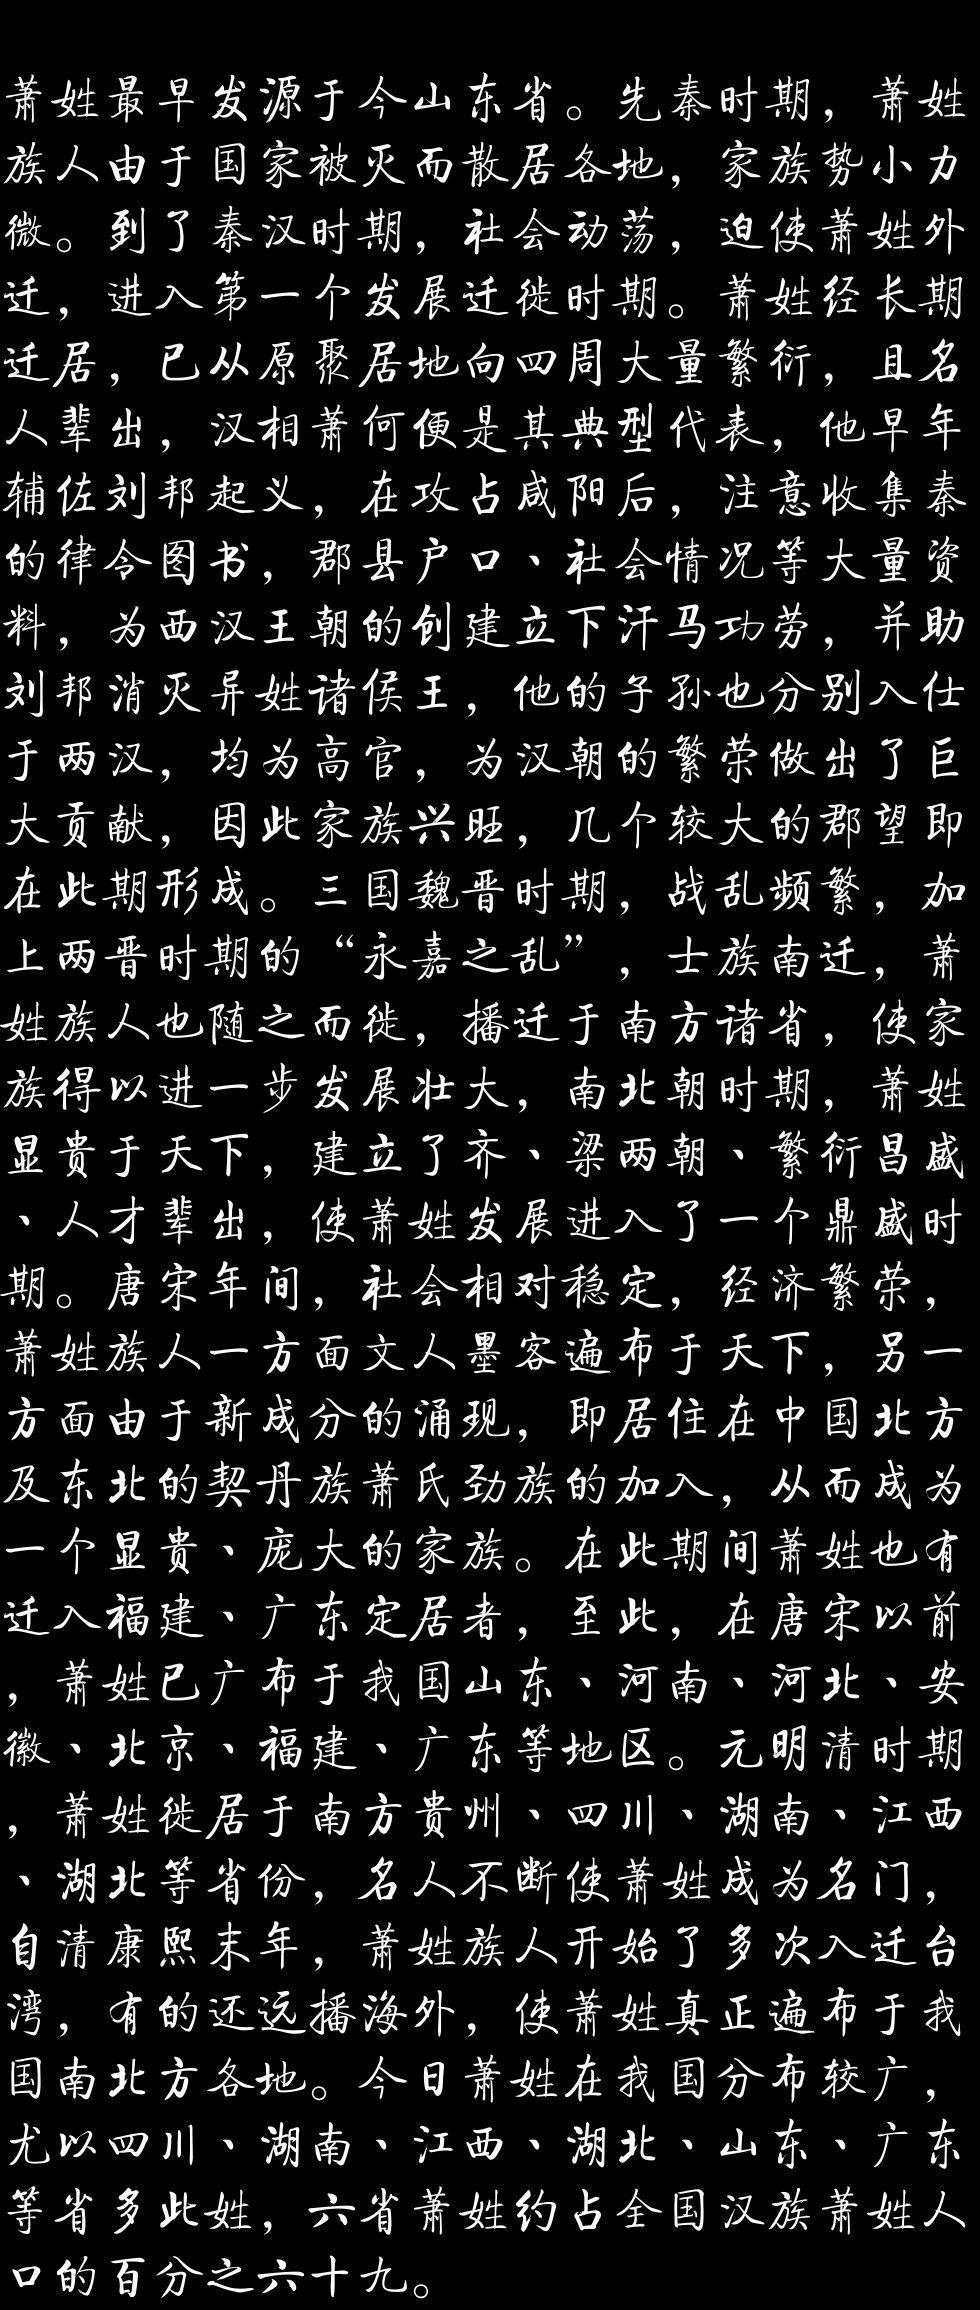 萧姓最早发源于今山东省。先秦时期，萧姓
族人由于国家被灭而散居各地，家族势小力
微。到了秦汉时期，社会动荡，迫使萧姓外
迁，进入第一个发展迁徙时期。萧姓经长期
迁居，已从原聚居地向四周大量繁衍，且名
人辈出，汉相萧何便是其典型代表，他早年
辅佐刘邦起义，在攻占咸阳后，注意收集秦
的律令图书，郡县户口、社会情况等大量资
料，为西汉王朝的创建立下汗马功劳，并助
刘邦消灭异姓诸侯王，他的子孙也分别入仕
于两汉，均为高官，为汉朝的繁荣做出了巨
大贡献，因此家族兴旺，几个较大的郡望即
在此期形成。三国魏晋时期，战乱频繁，加
上两晋时期的“永嘉之乱”，士族南迁，萧
姓族人也随之而徙，播迁于南方诸省，使家
族得以进一步发展壮大，南北朝时期，萧姓
显贵于天下，建立了齐、梁两朝、繁衍昌盛
、人才辈出，使萧姓发展进入了一个鼎盛时
期。唐宋年间，社会相对稳定，经济繁荣，
萧姓族人一方面文人墨客遍布于天下，另一
方面由于新成分的涌现，即居住在中国北方
及东北的契丹族萧氏劲族的加入，从而成为
一个显贵、庞大的家族。在此期间萧姓也有
迁入福建、广东定居者，至此，在唐宋以前
，萧姓已广布于我国山东、河南、河北、安
徽、北京、福建、广东等地区。元明清时期
，萧姓徙居于南方贵州、四川、湖南、江西
、湖北等省份，名人不断使萧姓成为名门，
自清康熙末年，萧姓族人开始了多次入迁台
湾，有的还远播海外，使萧姓真正遍布于我
国南北方各地。今日萧姓在我国分布较广，
尤以四川、湖南、江西、湖北、山东、广东
等省多此姓，六省萧姓约占全国汉族萧姓人
口的百分之六十九。